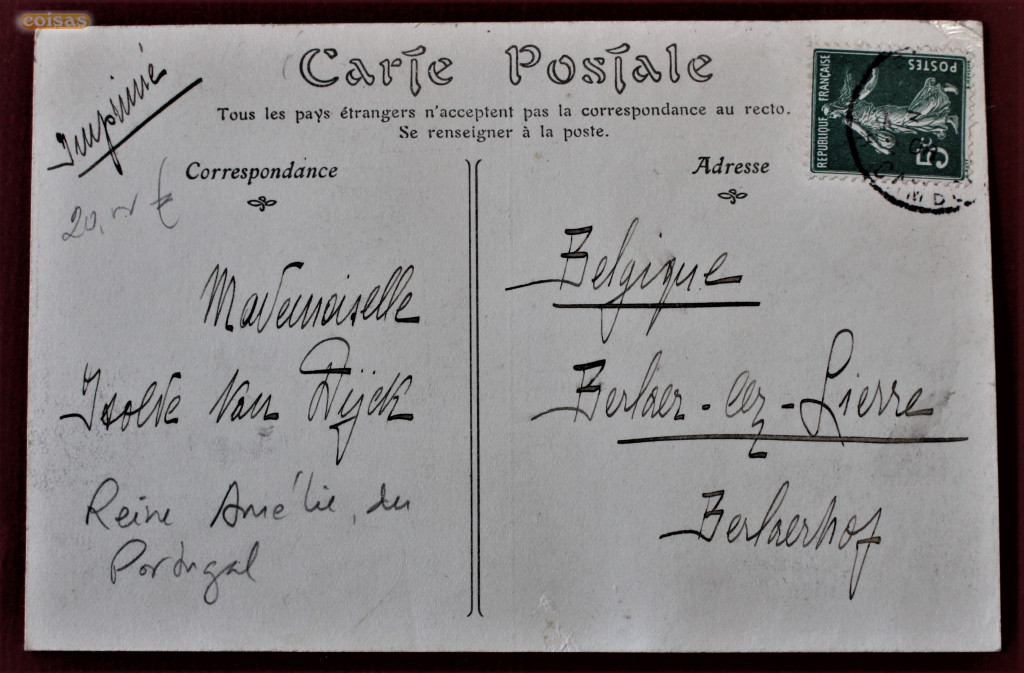 coisas
Carte Postale
Tous les pays étrangers n'acceptent pas la correspondance au recto.
Se renseigner à la poste.
Imprimé
Correspondance
20,
Mademoiselle
Isolde Van Dijck
Reine Amélie, du
Portugal
Adresse
Belgique
Berlaer-lez-Lierre
Berlaerhof
REPUBLIQUE FRANÇAISE
POSTES
5c